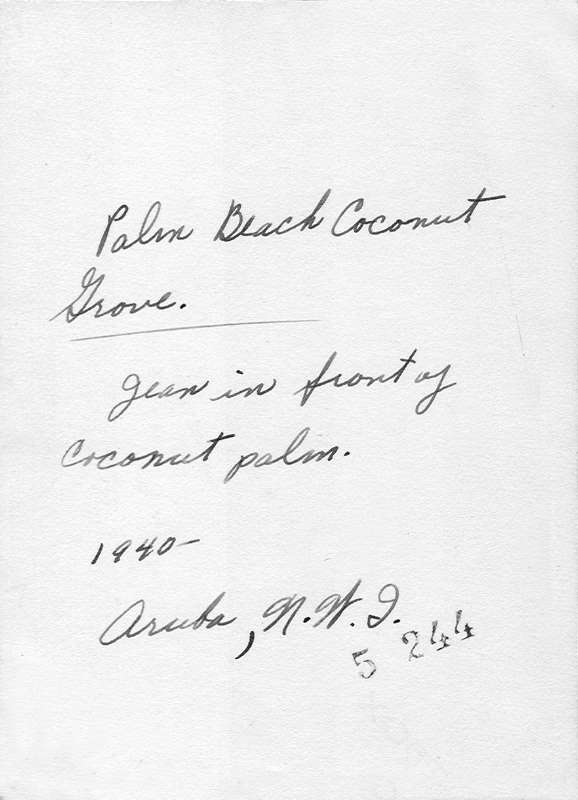 Palm Beach Coconut
Grove.
Jean in front of
Coconut palm.
1940-
Aruba, N.W.I.
5 244